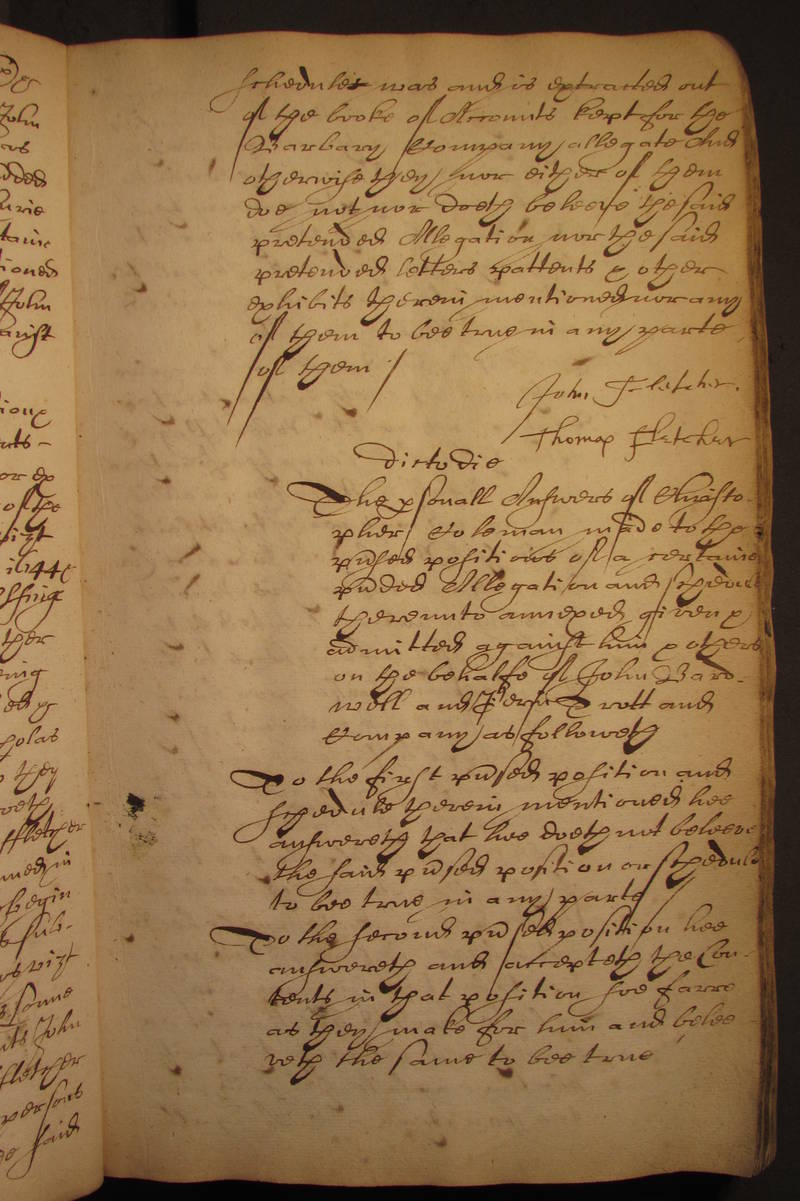 schedule was and is extracted out
of the booke of Accounts kept for the
Barbary Company allegate And
otherwise they nor either of them
doe not nor doeth beleeve the said
pretended Allegation nor the said
pretended letters pattents & other
exhibits therein mentioned nor any
of them to bee true in any parte
of them /
John Fletcher.
Thomas Fletcher
dicto die
The psonall Answers of Christo-
pher Coleman made to the
pñsed positions of a certaine
pñded Allegation and schedule
thereunto annexed given &
admitted against him & others
on the behalfe of John Bard-
well and Trott and
Company as followeth
To the first pñsed position and
schedule therein mentioned hee
answereth that hee doeth not beleeve
the said pñsed position or schedule
to bee true in any parte
To the second pñsed position hee
answereth and accepteth the Con-
tents in that position soe farre
as they make for him and belee
veth the same to bee true
John
as
John
of the
ther
olas
they
ffletcher
in
John
ffletcher
persons
said